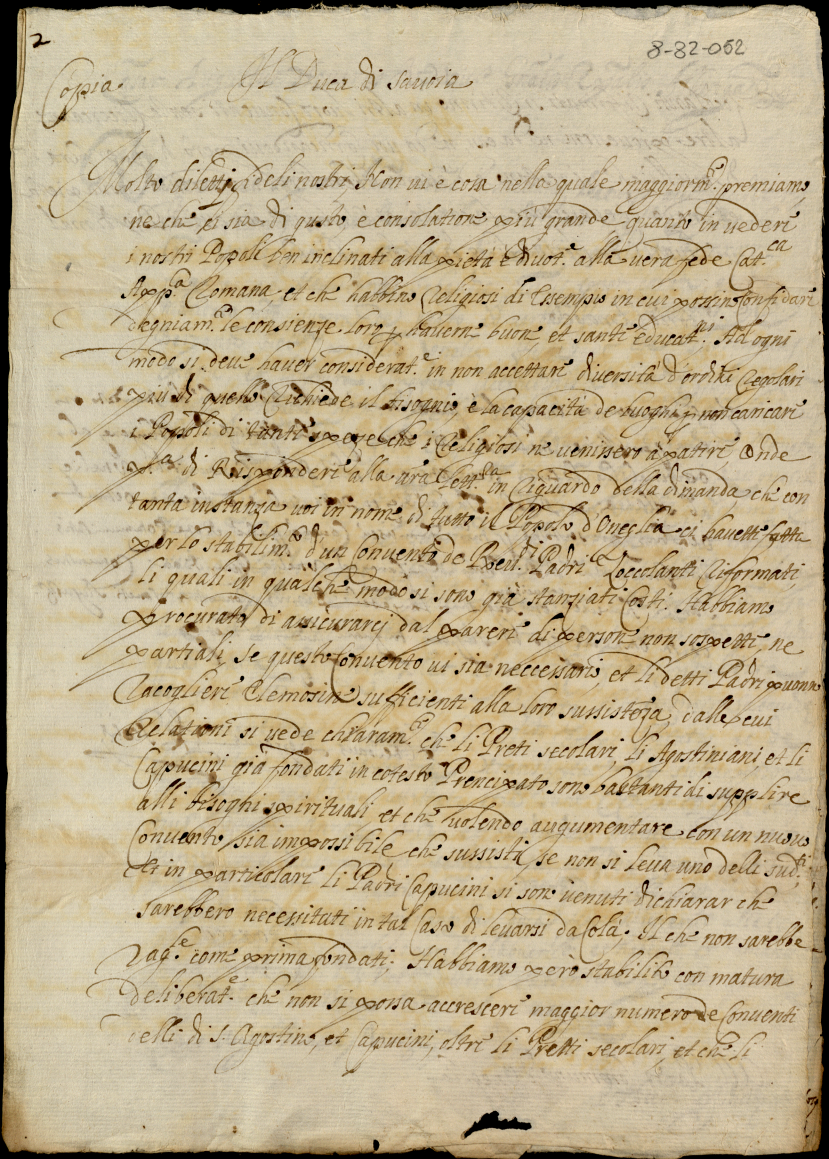 2
8-82-052
Copia Il Duca di Savoia
Molto diletti fideli nostri Non vi è cosa nella quale maggiorm.e premiamo,
ne che ci sia di gusto, è consolatione più grande quanto in vedere
i nostri Popoli ben inclinati alla pietà è divot.e alla vera fede Cat.ca
App.a Romana, et che habbino Religiosi di Essempio in cui possin Confidare
degniam.e le consienze loro, p haverne buone et sante educat.ni Ad ogni
modo si deve haver considerat.e in non accettare diversità d'ordini Regolari
più di quello Richiede il bisogno, è la capacità de luoghi p non caricare
i Popoli di tante speze che i Religiosi ne venissero à patire, Onde
p.a di Rispondere alla vra lett.ra in Riguardo della dimanda che con
tanta instanza voi in nome di tutto il Popolo d'Oneglia ci havete fatta
per lo stabilim.to d'un Convento de Rev.di Padri Zoccolanti Riformati,
li quali in qualche modo si sono già stanziati Costì. Habbiamo
procurato di assicurarci dal parere di persone non sospette, ne
partiali, se questo Convento vi sia neccessario, et li detti Padri puonno
Racogliere Elemosine sufficienti alla loro sussistenza, dalle cui
Relationi si vede chiaram.te che li Preti secolari, li Agostiniani, et li
Capucini già fondati in cotesto Prencipato sono bastanti di supplire
alli bisogni spirituali et che volendo augumentare con un nuovo
Convento sia impossibile che sussisti, se non si leva uno delli sud.i
et in particolare li Padri Capucini si son venuti dichiarar che
sarebbero necessitati in tal Caso di levarsi da Colà, Il che non sarebbe
rag.le come prima fondati; Habbiamo però stabilito con matura
deliberat.e che non si possa accrescere maggior numero de Conventi
delli di S. Agostino, et Capucini, oltre li Pretti secolari, et che li